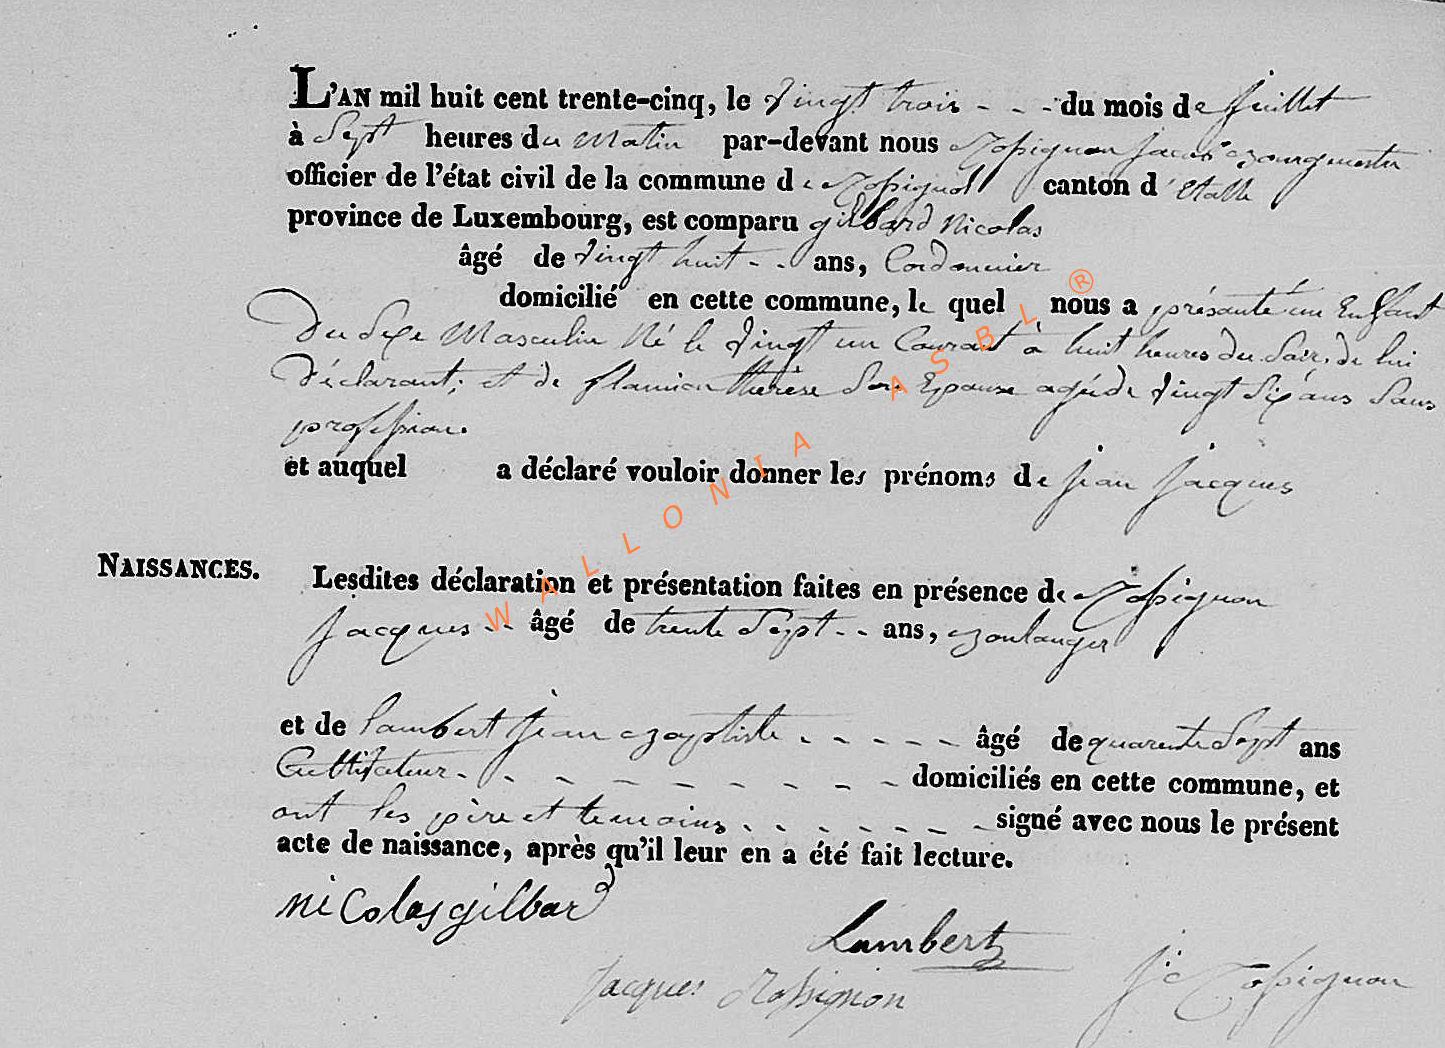 L'AN mil huit cent trente-cinq, le vingt trois - - - du mois de juillet
à sept heures du matin par-devant nous Rossignon jacques Bourgmestre
officier de l'état civil de la commune de Rossignol canton d'Etalle
province de Luxembourg, est comparu gilbard Nicolas
âgé de vingt huit - - ans, Cordonnier
domicilié en cette commune, le quel nous a présenté un Enfant
Du Sexe Masculin Né le vingt un Courant à huit heures du Soir, de lui
Déclarant; et de flamion thérèse Son Epouse agée de vingt Six ans Sans
profession.
et auquel a déclaré vouloir donner les prénoms de jean jacques
NAISSANCES.
Lesdites déclaration et présentation faites en présence de Rossignon
jacques - - âgé de trente Sept - - ans, Boulanger
et de Lambert jean Baptiste - - - - - âgé de quarente Sept ans
Cultivateur - - - - - - - - domiciliés en cette commune, et
ont les père et temoins - - - - - - - signé avec nous le présent
acte de naissance, après qu'il leur en a été fait lecture.
nicolas gilbard
Lambert
Jacques Rossignon
Rossignon
WALLONIA ASBL ®